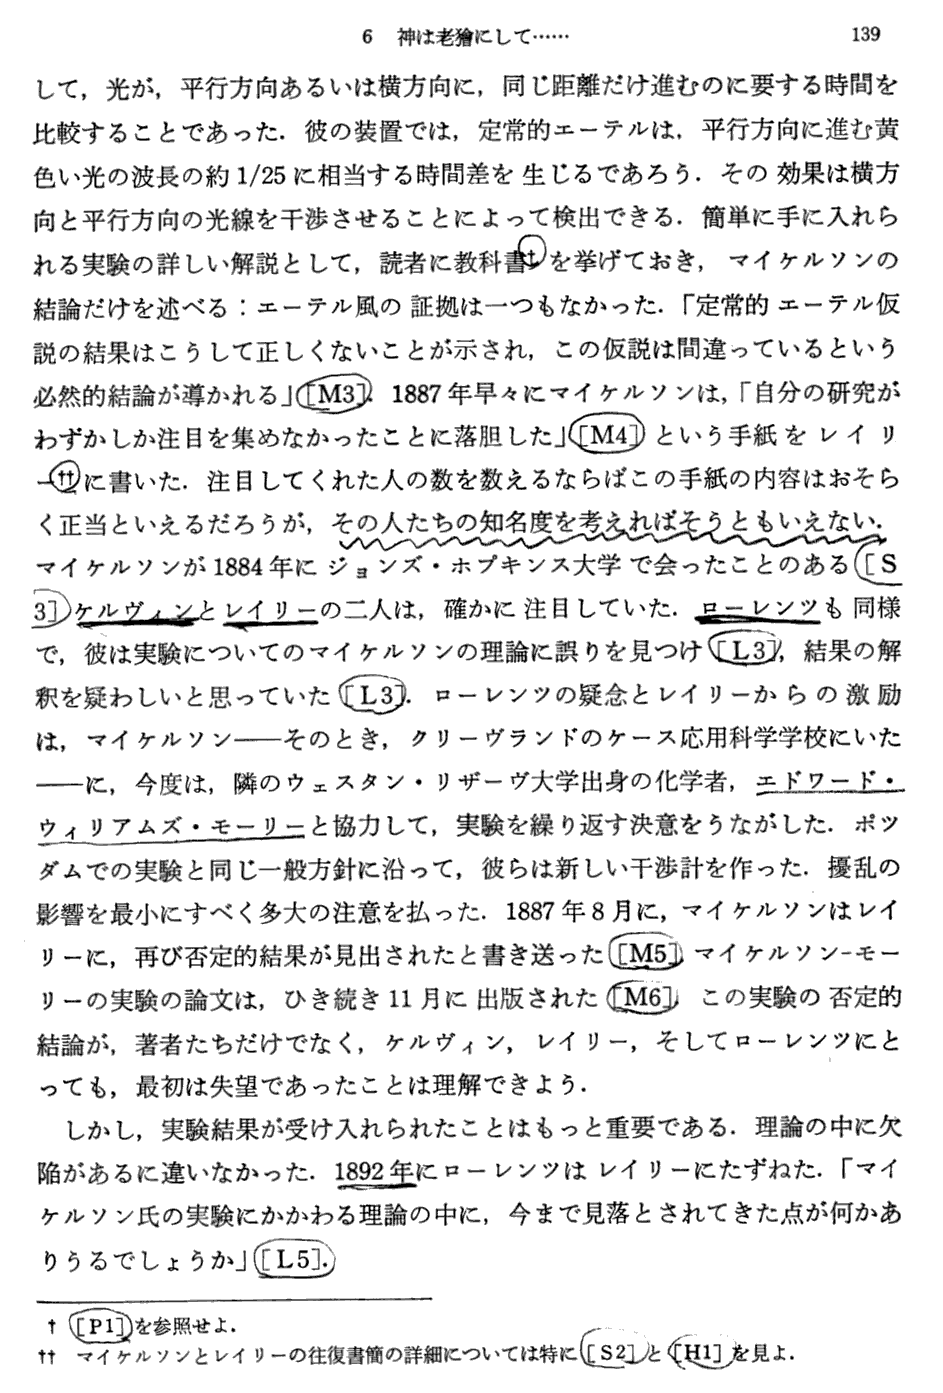 6 神は老獪にして…… 139
して，光が，平行方向あるいは横方向に，同じ距離だけ進むのに要する時間を
比較することであった．彼の装置では，定常的エーテルは，平行方向に進む黄
色い光の波長の約 1/25 に相当する時間差を生じるであろう．その効果は横方
向と平行方向の光線を干渉させることによって検出できる．簡単に手に入れら
れる実験の詳しい解説として，読者に教科書†を挙げておき，マイケルソンの
結論だけを述べる：エーテル風の証拠は一つもなかった．「定常的エーテル仮
説の結果はこうして正しくないことが示され，この仮説は間違っているという
必然的結論が導かれる」[M3]．1887 年早々にマイケルソンは，「自分の研究が
わずかしか注目を集めなかったことに落胆した」[M4] という手紙をレイリ
ー††に書いた．注目してくれた人の数を数えるならばこの手紙の内容はおそら
く正当といえるだろうが，その人たちの知名度を考えればそうともいえない．
マイケルソンが 1884 年にジョンズ・ホプキンス大学で会ったことのある [S
3] ケルヴィンとレイリーの二人は，確かに注目していた．ローレンツも同様
で，彼は実験についてのマイケルソンの理論に誤りを見つけ [L3]，結果の解
釈を疑わしいと思っていた [L3]．ローレンツの疑念とレイリーからの激励
は，マイケルソン――そのとき，クリーヴランドのケース応用科学学校にいた
――に，今度は，隣のウェスタン・リザーヴ大学出身の化学者，エドワード・
ウィリアムズ・モーリーと協力して，実験を繰り返す決意をうながした．ポツ
ダムでの実験と同じ一般方針に沿って，彼らは新しい干渉計を作った．擾乱の
影響を最小にすべく多大の注意を払った．1887 年 8 月に，マイケルソンはレイ
リーに，再び否定的結果が見出されたと書き送った [M5]．マイケルソン-モー
リーの実験の論文は，ひき続き 11 月に出版された [M6]．この実験の否定的
結論が，著者たちだけでなく，ケルヴィン，レイリー，そしてローレンツにと
っても，最初は失望であったことは理解できよう．
しかし，実験結果が受け入れられたことはもっと重要である．理論の中に欠
陥があるに違いなかった．1892 年にローレンツはレイリーにたずねた．「マイ
ケルソン氏の実験にかかわる理論の中に，今まで見落とされてきた点が何かあ
りうるでしょうか」[L5]．
† [P1] を参照せよ．
†† マイケルソンとレイリーの往復書簡の詳細については特に [S2] と [H1] を見よ．